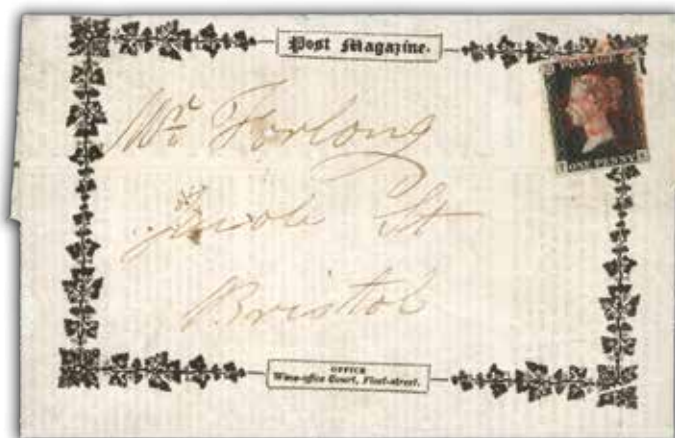 Post Magazine.
POSTAGE
ONE PENNY
Mr Forlong
St
Bristol
OFFICE
Wine-office Court, Fleet-street.